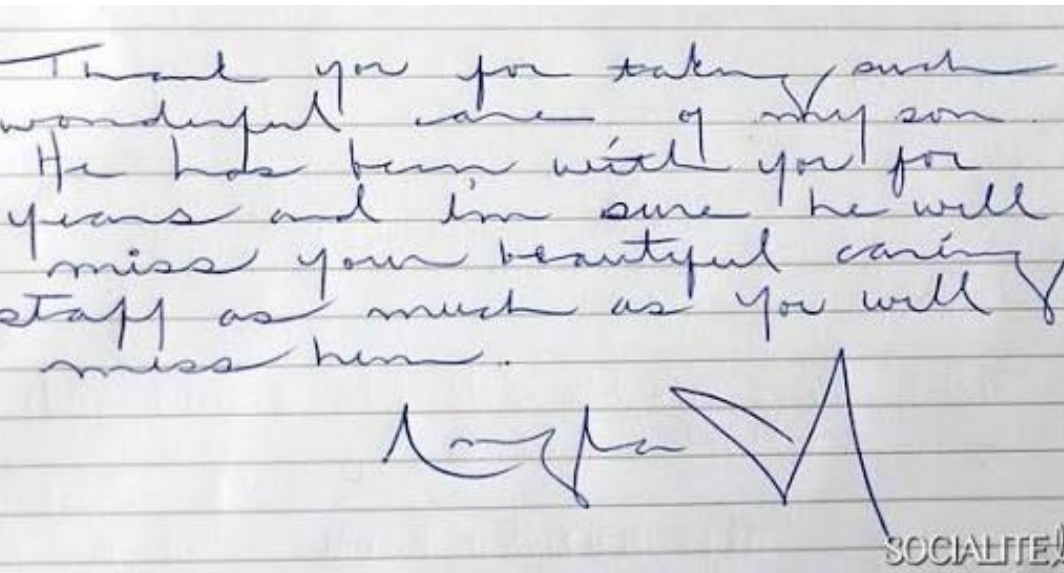 Thank you for taking such
wonderful care of my son.
He has been with you for
years and I'm sure he will
miss your beautiful caring
staff as much as you will
miss him.
SOCIALITE